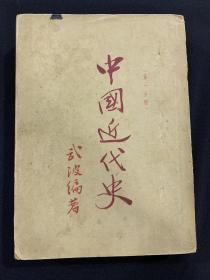 中國近代史
武波編著